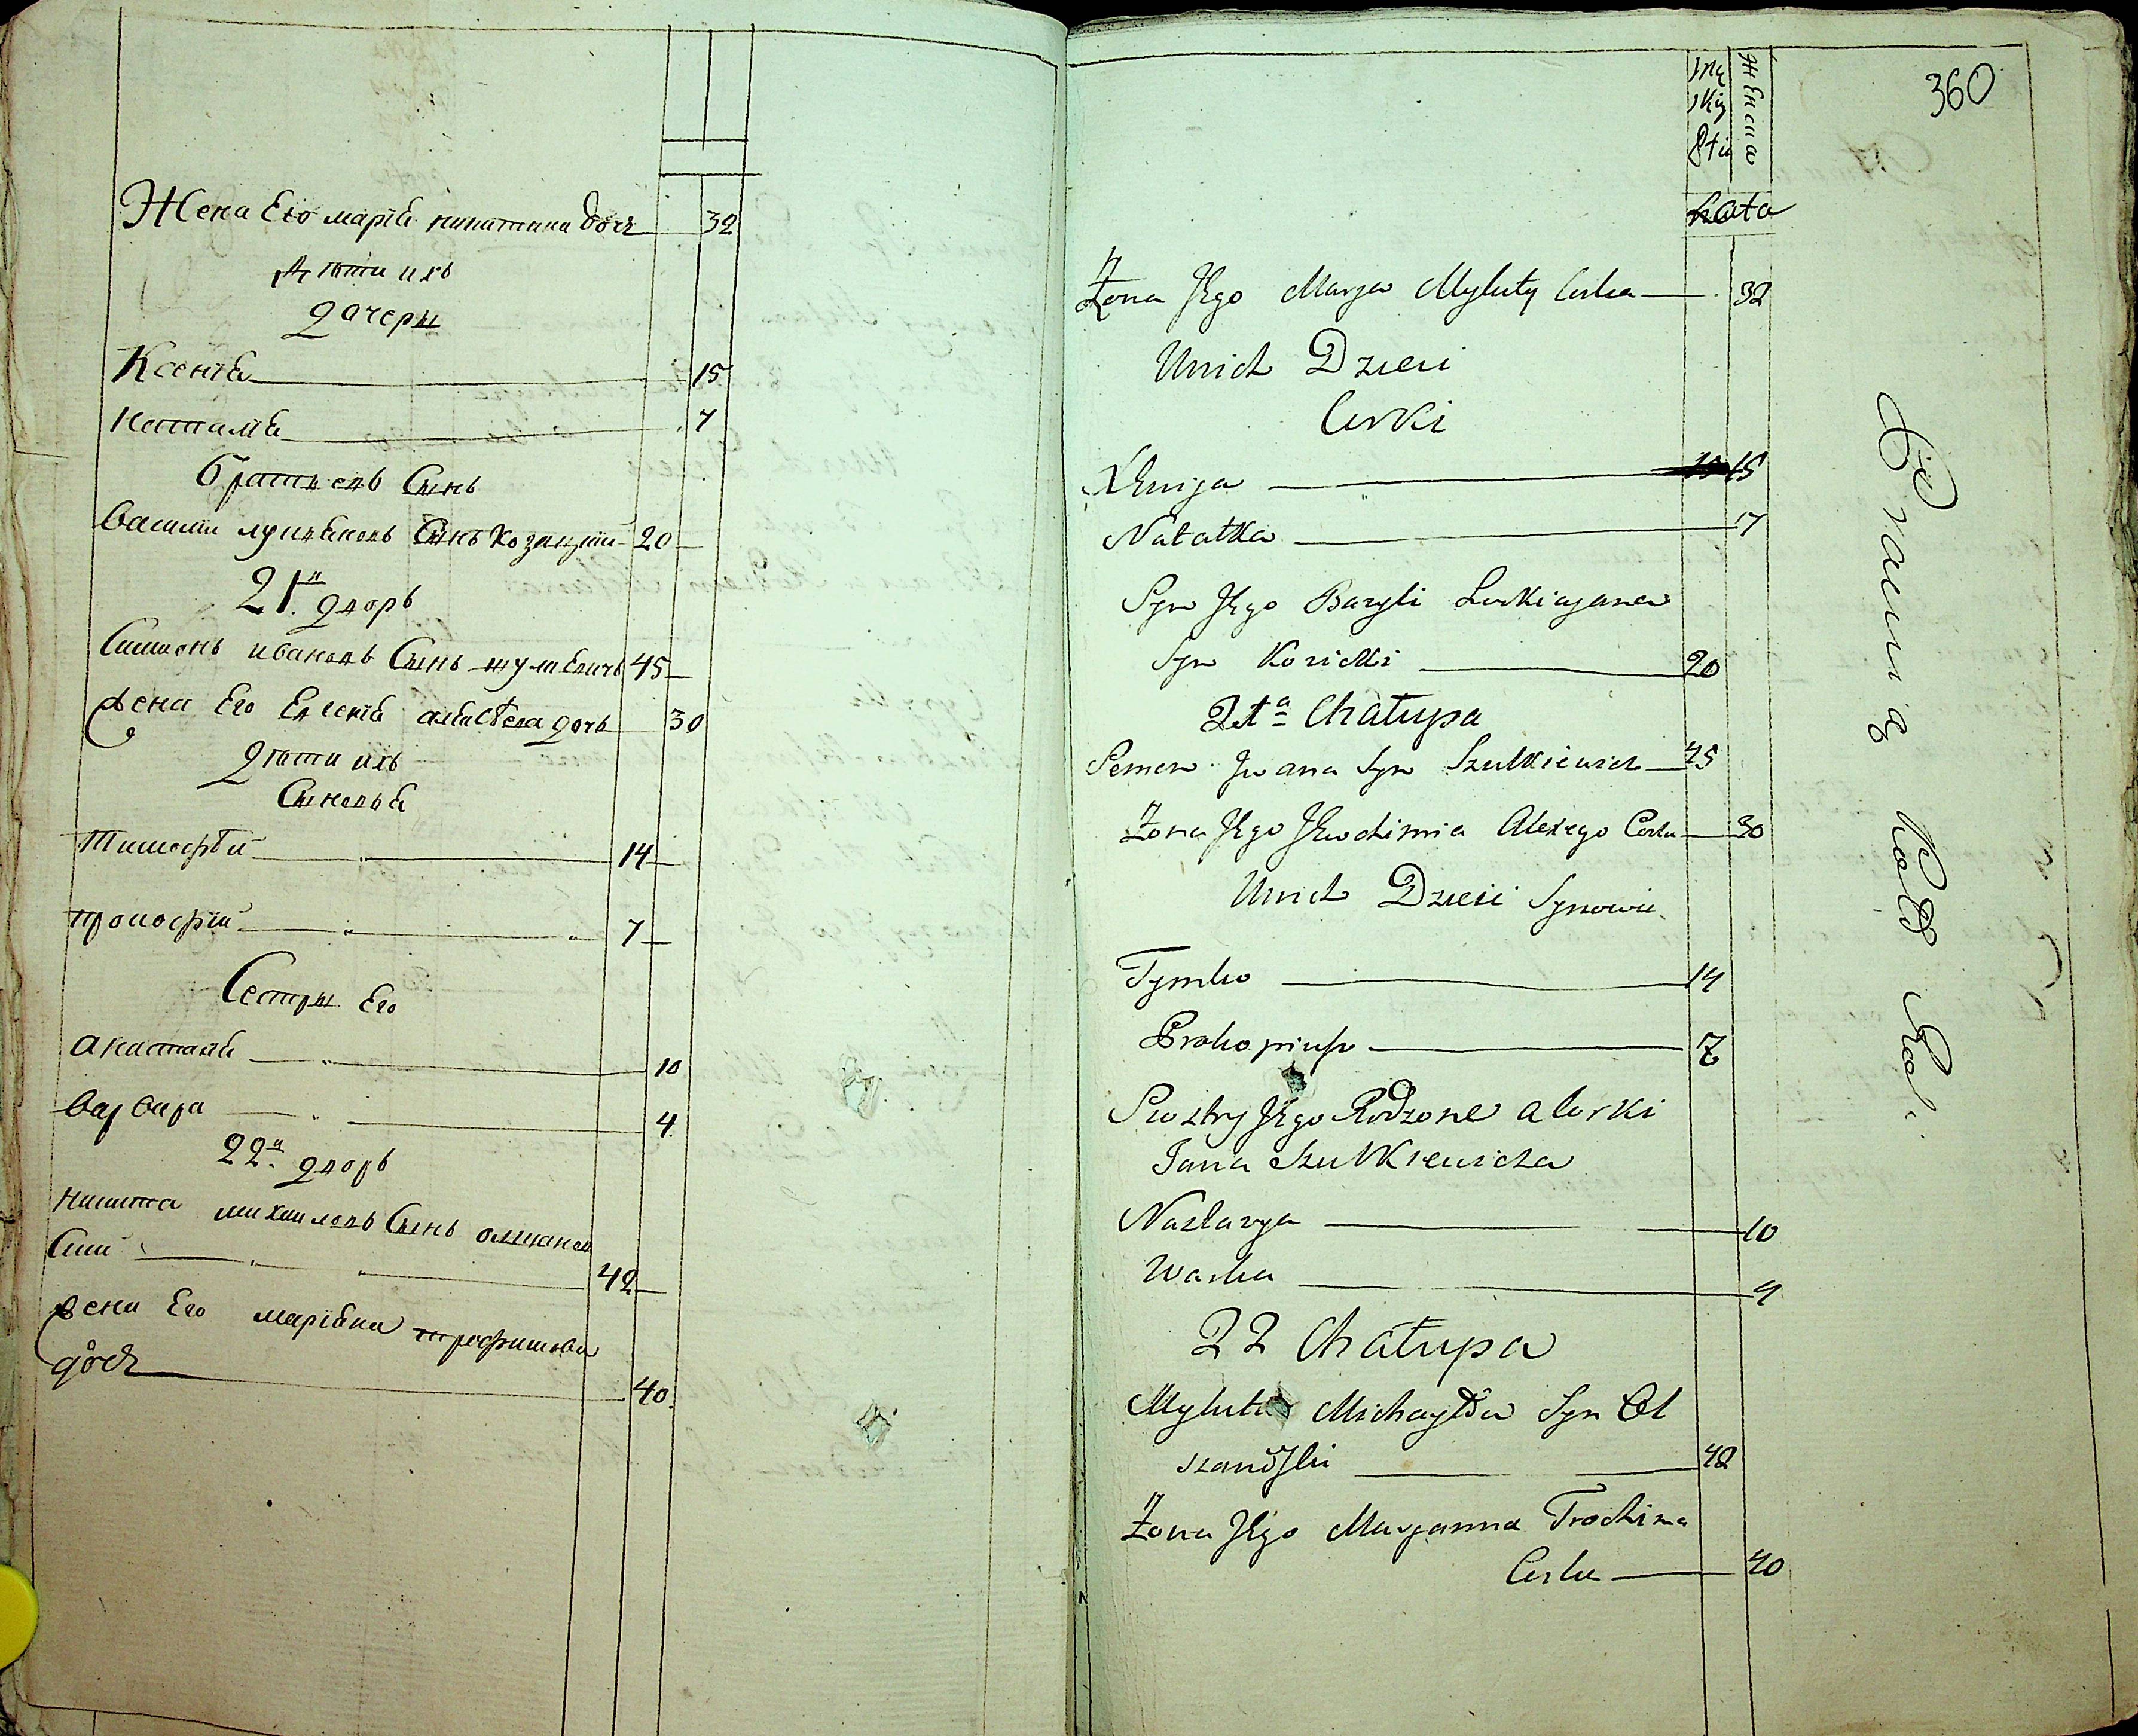 Жена Его марїѣ никитина дочь 32
Дѣти ихъ
дочеры
Ксенїѣ 15
Наталїѣ 7
братневъ Сынъ
василїй лукїановъ Сынъ Козицкїй 20
21й дворъ
Симионъ ивановъ Сынъ шулкевичъ 45
жена Его алексѣева дочь 30
дѣти ихъ
Сыновья
Тимофей 14
прокофїй 7
Сестры Его
анастасїѣ 10
варвара 4
22й дворъ
никита михайловъ Сынъ олшанов
Скїй 42
жена Его марїѣна трофимова
дочь 40
360
mę
skiey
Płci
женска
Lata
Żona Jego Marya Mykity Corka 32
Unich Dzieci
Corki
Xenija 15
Natałka 7
Syn Jego Bazyli Lukiajana
Syn Kozicki 20
21a Chałupa
Semen Jwana Syn Szulkiewicz 45
Żona Jego Jewchimia Alexego Corka 30
Unich Dzieci Synowie
Tymko 14
Prokopiusz 7
Siostry Jego Rodzone a Corki
Jana Szulkiewicza
Nastazya 10
Warka 4
22 Chałupa
Mykita Michayła Syn Ol
szanoski 42
Żona Jego Maryanna Trochima
Corka 40